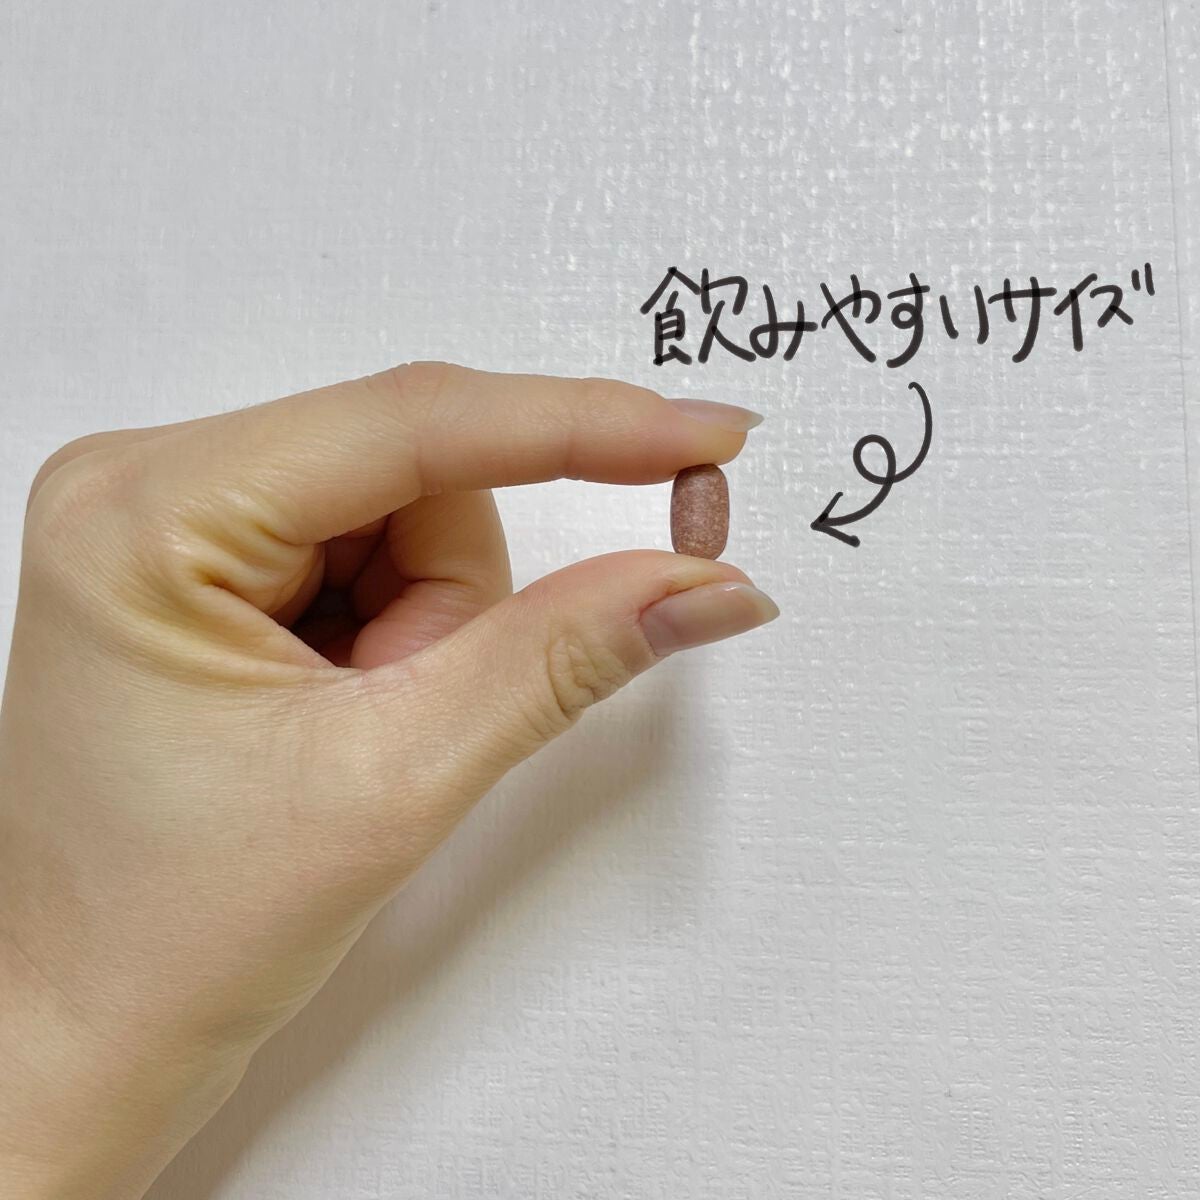 飲みやすいサイズ